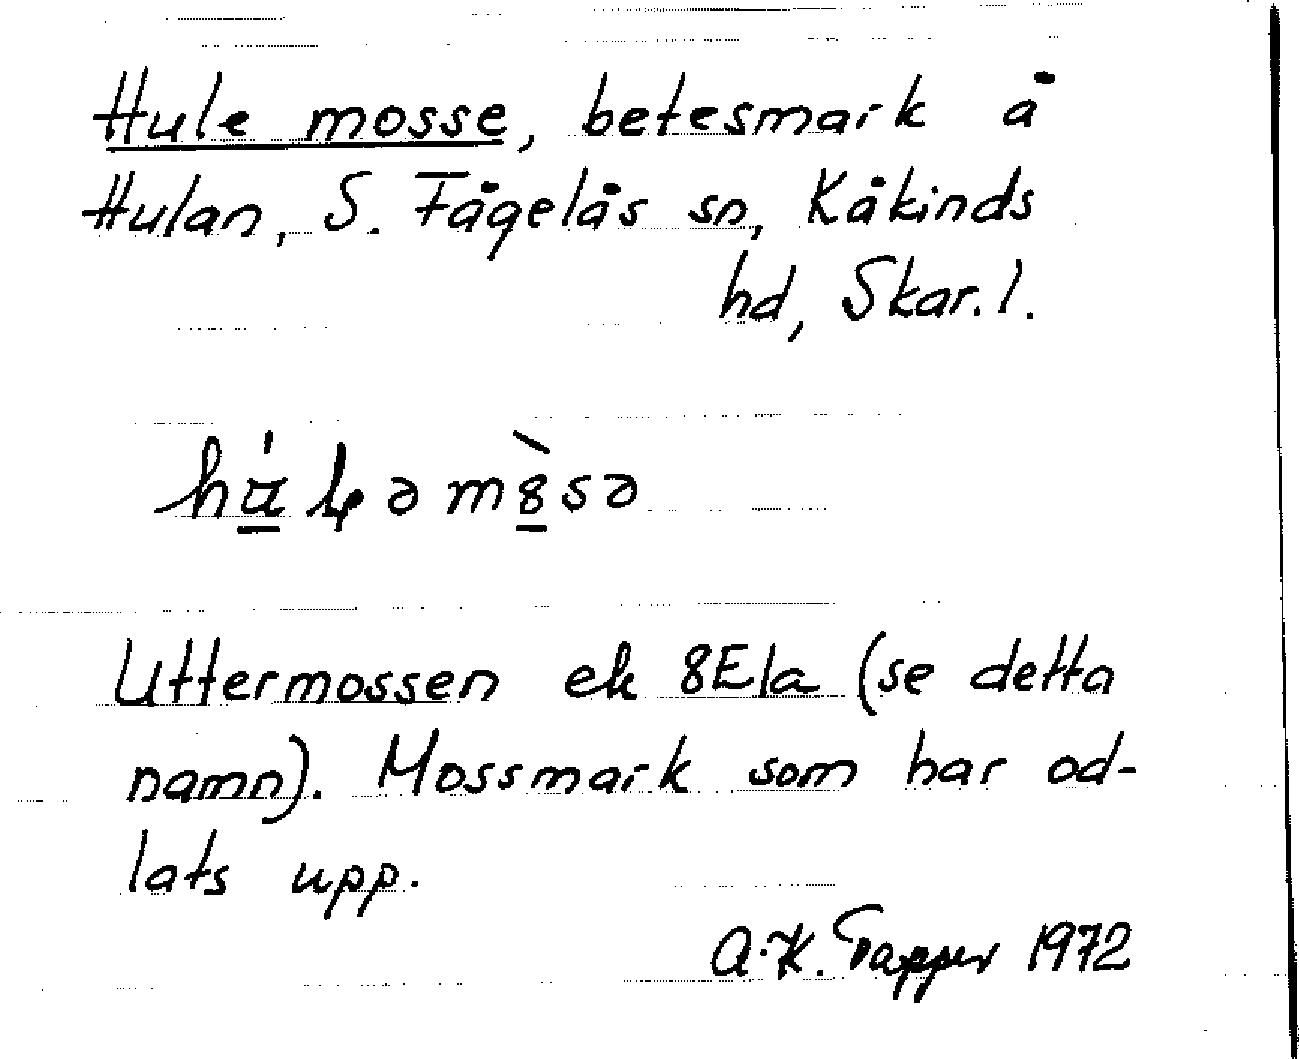 Hule mosse, betesmark å
Hulan, S. Fågelås sn, Kåkinds
hd, Skar.l.
Uttermossen ek 8E1a (se detta
namn). Mossmark som har od-
lats upp.
A.-K. Tapper 1972